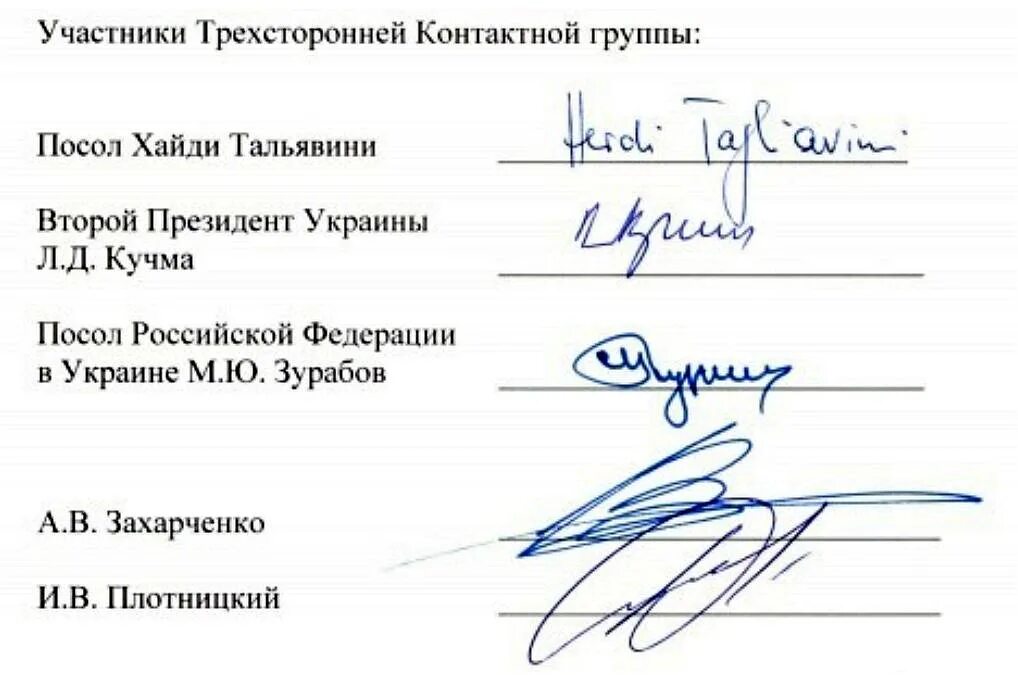 Участники Трехсторонней Контактной группы:
Посол Хайди Тальявини Heidi Tagliavini
Второй Президент Украины
Л.Д. Кучма
Посол Российской Федерации
в Украине М.Ю. Зурабов
А.В. Захарченко
И.В. Плотницкий